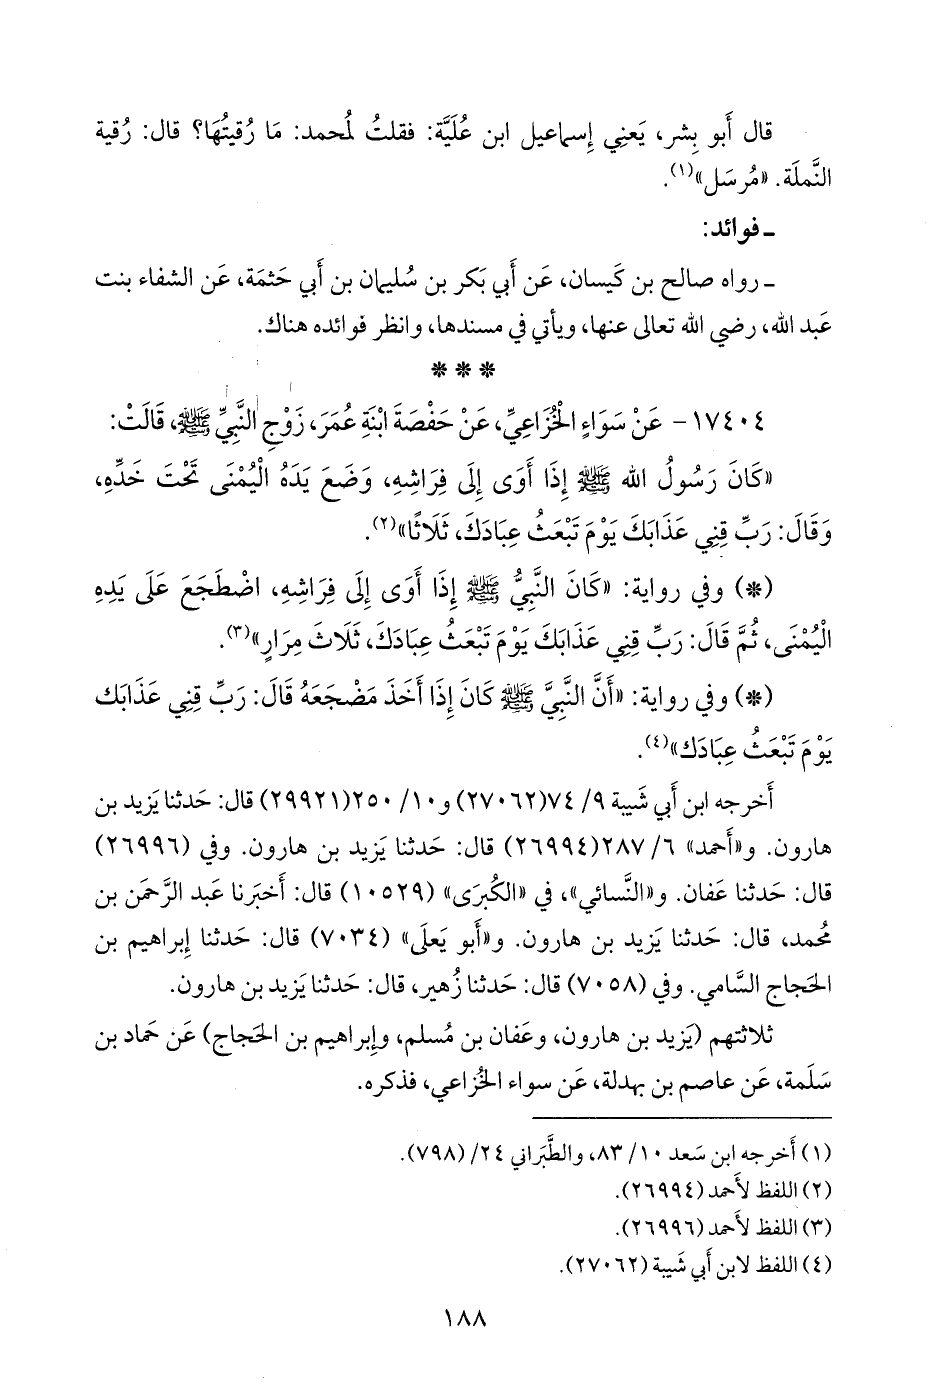 قال أَبو بِشر، يَعنِي إِسماعيل ابن عُلَيَّة: فقلتُ لمُحمد: مَا رُقيتُهَا؟ قال: رُقية
النَّملَة. «مُرسَل»(١).
ـ فوائد:
ـ رواه صالح بن كَيسان، عَن أَبي بَكر بن سُليمان بن أَبي حَثمَة، عَن الشفاء بنت
عَبد الله، رضي الله تعالى عنها، ويأتي في مسندها، وانظر فوائده هناك.
* * *
١٧٤٠٤ - عَنْ سَوَاءٍ الْخُزَاعِيِّ، عَنْ حَفْصَةَ ابْنَةِ عُمَرَ، زَوْجِ النَّبِيِّ ﷺ، قَالَتْ:
«كَانَ رَسُولُ الله ﷺ إِذَا أَوَى إِلَى فِرَاشِهِ، وَضَعَ يَدَهُ الْيُمْنَى تَحْتَ خَدِّهِ،
وَقَالَ: رَبِّ قِنِي عَذَابَكَ يَوْمَ تَبْعَثُ عِبَادَكَ، ثَلَاثًا»(٢).
(*) وفي رواية: «كَانَ النَّبِيُّ ﷺ إِذَا أَوَى إِلَى فِرَاشِهِ، اضْطَجَعَ عَلَى يَدِهِ
الْيُمْنَى، ثُمَّ قَالَ: رَبِّ قِنِي عَذَابَكَ يَوْمَ تَبْعَثُ عِبَادَكَ، ثَلَاثَ مِرَارٍ»(٣).
(*) وفي رواية: «أَنَّ النَّبِيَّ ﷺ كَانَ إِذَا أَخَذَ مَضْجَعَهُ قَالَ: رَبِّ قِنِي عَذَابَكَ
يَوْمَ تَبْعَثُ عِبَادَكَ»(٤).
أَخرجه ابن أَبي شَيبة ٩/ ٧٤(٢٧٠٦٢) و١٠/ ٢٥٠(٢٩٩٢١) قال: حَدثنا يَزيد بن
هارون. و«أَحمد» ٦/ ٢٨٧(٢٦٩٩٤) قال: حَدثنا يَزيد بن هارون. وفي (٢٦٩٩٦)
قال: حَدثنا عَفان. و«النَّسائي»، في «الكُبرَى» (١٠٥٢٩) قال: أَخبَرنا عَبد الرَّحمَن بن
مُحمد، قال: حَدثنا يَزيد بن هارون. و«أَبو يَعلَى» (٧٠٣٤) قال: حَدثنا إِبراهيم بن
الحَجاج السَّامي. وفي (٧٠٥٨) قال: حَدثنا زُهير، قال: حَدثنا يَزيد بن هارون.
ثلاثتهم (يَزيد بن هارون، وعَفان بن مُسلم، وإِبراهيم بن الحَجاج) عَن حَماد بن
سَلَمة، عَن عاصم بن بهدلة، عَن سواء الخُزاعي، فذكره.
(١) أَخرجه ابن سَعد ١٠/ ٨٣، والطَّبَراني ٢٤/ (٧٩٨).
(٢) اللفظ لأَحمد (٢٦٩٩٤).
(٣) اللفظ لأَحمد (٢٦٩٩٦).
(٤) اللفظ لابن أَبي شَيبة (٢٧٠٦٢).
١٨٨